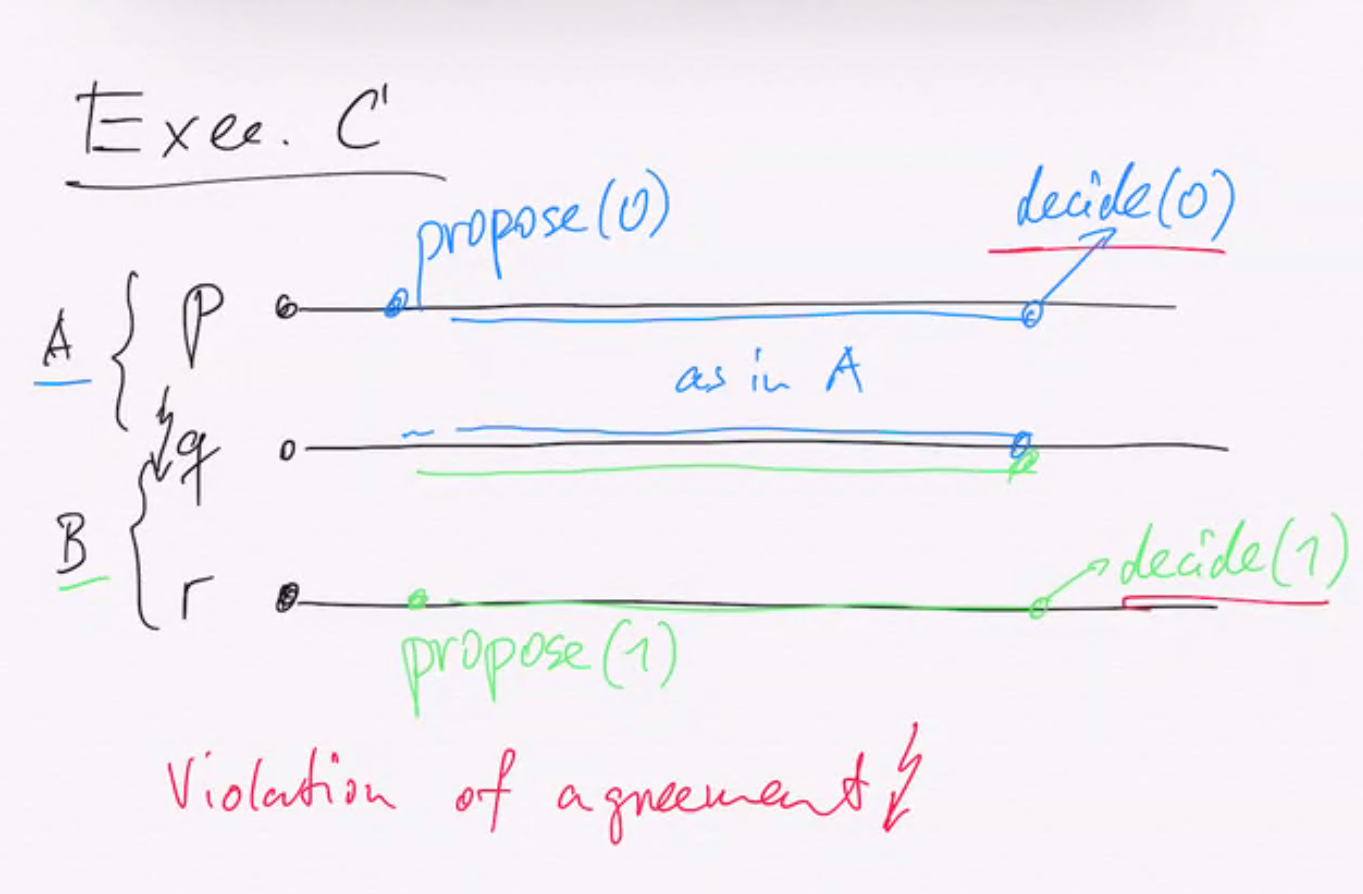 Exec. C
propose(0)
decide(0)
A
p
as in A
q
B
decide(1)
r
propose(1)
Violation of agreement